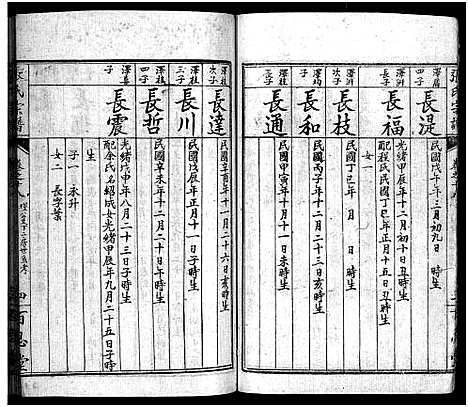 張氏宗譜
澤居
子
長湜
民國戊午年三月初九日 時生
澤洲
長子
長福
光緒甲辰年十二月初十日丑時生
配程氏民國丁巳年正月十五日丑時生
女一
澤洲
次子
長枝
民國丁巳年 月 日 時生
長和
民國丙子年十二月二十三日亥時生
長通
民國甲寅年十月十一日未時生
澤柱
次子
長達
宣統辛亥年十一月二十六日亥時生
澤柱
三子
長川
民國戊辰年正月十一日子時生
澤柱
四子
長哲
民國辛未年十二月二十日午時生
子
長震
光緒戊申年八月二十三日子時生
配余氏 紹成女光緒甲辰年九月二十五日子時
生
子一 永升
女二 長字葉
張氏宗譜
百忍堂